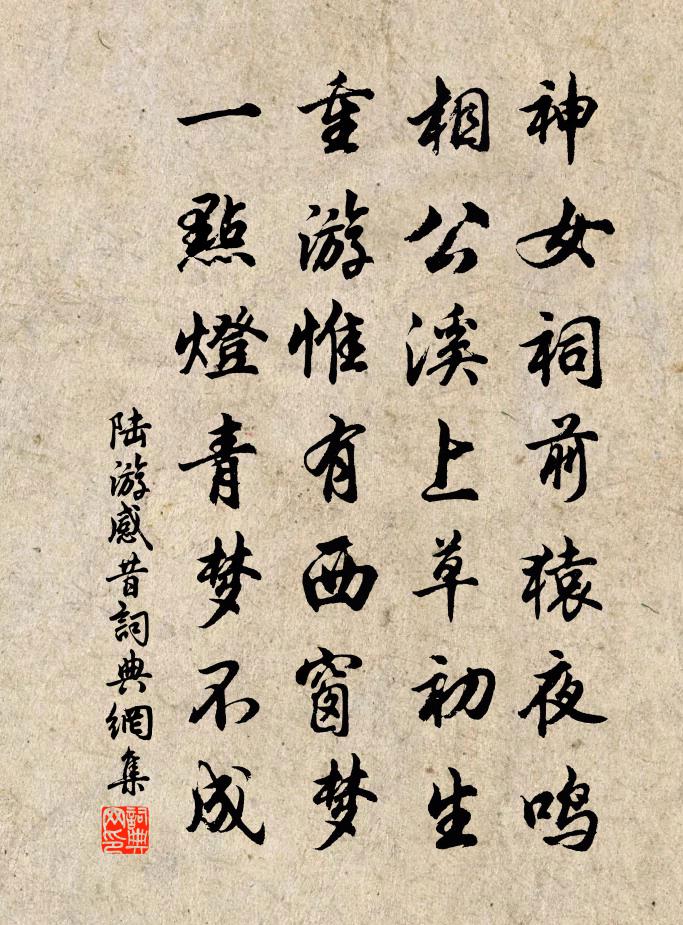 神女祠前猿夜鸣
相公溪上草初生
重游惟有西窗梦
一點燈青梦不成
陆游感昔詞典網集
詞典网印